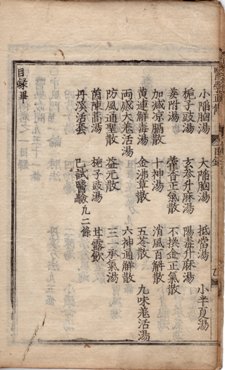 小陷胸湯 大陷胸湯 抵當湯 小半夏湯
梔子豉湯 玄參升麻湯 陽毒升麻湯
姜附湯 藿香正氣散 不換金正氣散
加減凉膈散 十神湯 消風百解散
黃連解毒湯 金沸草散 五苓散 九味羌活湯
兩感大羌活湯 六神通解散
防風通聖散 益元散 三一承氣湯
茵陳蒿湯 梔子豉湯 甘露飲
丹溪活套 已試醫驗九二條
目錄畢